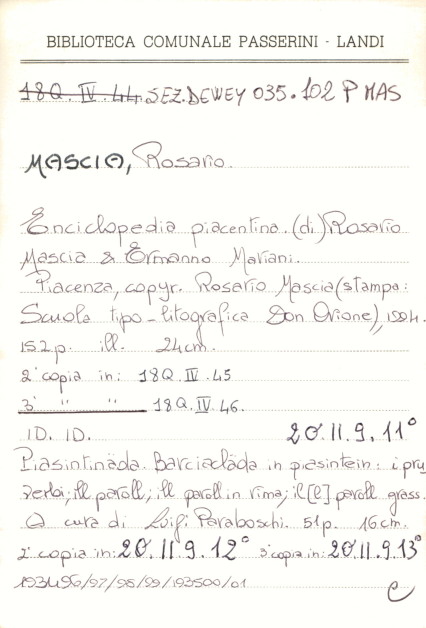 BIBLIOTECA COMUNALE PASSERINI - LANDI
18Q. IV. 44. SEZ. DEWEY 035.102 P MAS
MASCIA, Rosario.
Enciclopedia piacentina (di) Rosario
Mascia & Ermanno Mariani.
Piacenza, copyr. Rosario Mascia (stampa:
Scuola tipo-litografica Don Orione), 1994.
152 p. ill. 24 cm.
2ª copia in: 18Q. IV. 45
3ª " " 18Q. IV. 46.
ID. ID. 20. II. 9. 11°
Piasintinäda. Barciacläda in piasintein: i pru
verbi; ill paroll; ill paroll in rima; il [l] paroll grass.
A cura di Luigi Paraboschi. 51 p. 16 cm.
2ª copia in: 20. II. 9. 12° 3ª copia in: 20. II. 9. 13°
193496/97/98/99/193500/01